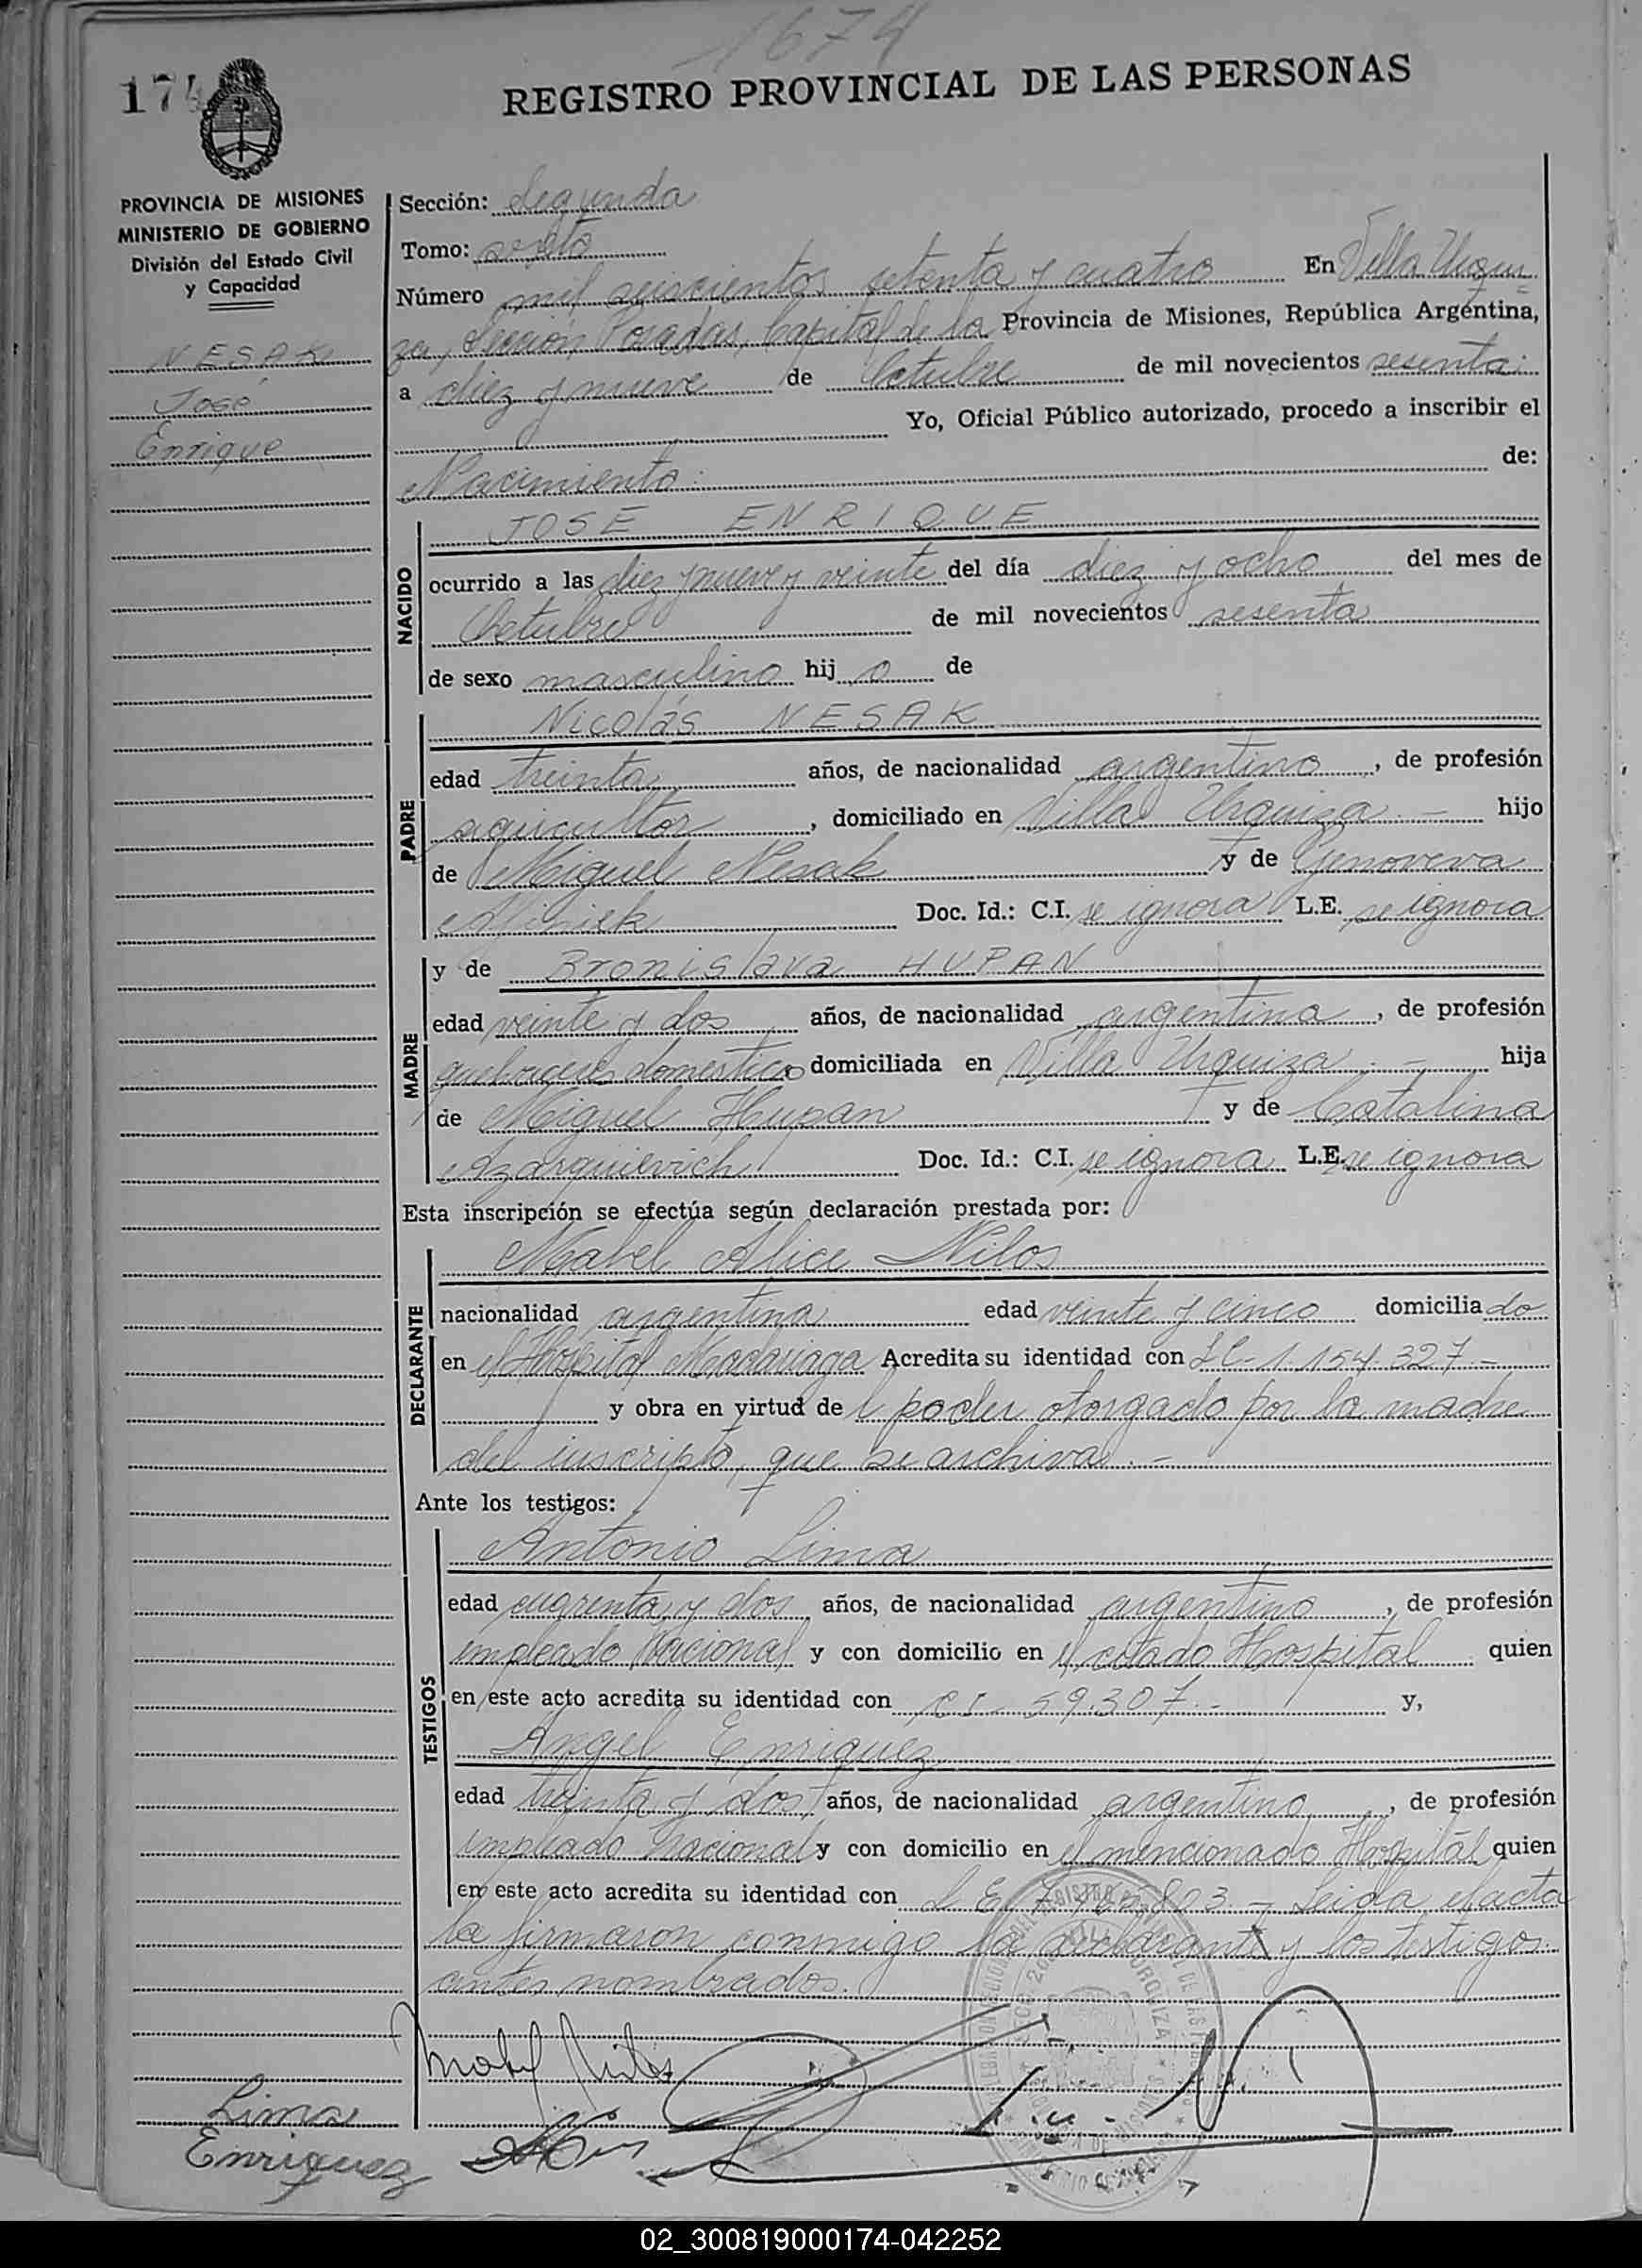 1674
174
REGISTRO PROVINCIAL DE LAS PERSONAS
PROVINCIA DE MISIONES
MINISTERIO DE GOBIERNO
División del Estado Civil
y Capacidad
NESAK
José
Enrique
Sección: Segunda
Tomo: sexto
Número mil seiscientos setenta y cuatro En Villa Urqui=
za, Sección Posadas, Capital de la Provincia de Misiones, República Argentina,
a diez y nueve de Octubre de mil novecientos sesenta:
Yo, Oficial Público autorizado, procedo a inscribir el
Nacimiento: de:
NACIDO
JOSE ENRIQUE
ocurrido a las diez y nueve y veinte del día diez y ocho del mes de
Octubre de mil novecientos sesenta
de sexo masculino hijo de
PADRE
Nicolás NESAK
edad treinta años, de nacionalidad argentino, de profesión
agricultor, domiciliado en Villa Urquiza.- hijo
de Miguel Nesak y de Genoveva
Doc. Id.: C.I. se ignora L.E. se ignora
MADRE
y de Bronislava HUPAN
edad veinte y dos años, de nacionalidad argentina, de profesión
quehaceres domesticos domiciliada en Villa Urquiza.- hija
de Miguel Hupan y de Catalina
Azarquievich Doc. Id.: C.I. se ignora L.E. se ignora
Esta inscripción se efectúa según declaración prestada por:
DECLARANTE
Mabel Alice Nilos
nacionalidad argentina edad veinte y cinco domiciliado
en el Hospital Madariaga Acredita su identidad con LC-1.154.327-
y obra en virtud del poder otorgado por la madre
del inscripto, que se archiva.-
Ante los testigos:
TESTIGOS
Antonio Lima
edad cuarenta y dos años, de nacionalidad argentino, de profesión
empleado Nacional y con domicilio en el citado Hospital quien
en este acto acredita su identidad con CI- 59.307.- y,
Angel Enriquez
edad treinta y dos años, de nacionalidad argentino, de profesión
empleado Nacional y con domicilio en el mencionado Hospital quien
en este acto acredita su identidad con L E - Leida el acta
la firmaron conmigo la declarante y los testigos
antes nombrados.
Mabel Nilos
Lima
Enriquez
02_300819000174-042252